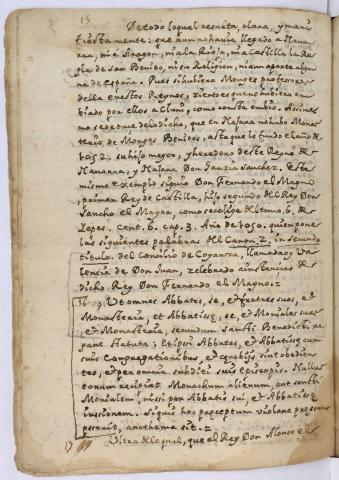 15
De todo loqual resulta, clara, y mani
fiesta mente: que aun no havia llegado a Nava
rra, ni a Aragon, ni a la Rioja, ni a Castilla la Re
gla de San Benito, ni su Religion, ni a un aparte algu
na de España. Pues si hubiera Monges professores
della en estos Reynos, zierto es que no hubiera en
biado por ellos a Cluni, como consta embio. Assimes
mo se deduce de lo dicho, que en Naxara no hubo Monas
terio de Monges Benitos, asta que le fundo el año de
1052. su hijo mayor, y heredero deste Reyno de
Nauarra, y Naxara Don Garzia Sanchez. Este
mismo exemplo siguio Don Fernando el Magno,
primer Rey de Castilla, hijo segundo del Rey Don
Sancho el Mayor, como se colige del tomo. 6. de
Yepes. cent. 6. cap. 3. Año de 1050. quien pone
las siguientes palabras del Canon. 2. in secundo
titulo. del Concilio de Coyanza, llamada oy Va
lencia de Don Juan, zelebrado a instancias de
dicho Rey Don Fernando el Magno.=
16 Ut omnes Abbates, se, et fratres suos, et
Monasteria, et Abbatissæ, se, et Moniales suas
et Monasteria, secundum Sancti Benedicti re
gant Statuta: et ipsi Abbates, et Abbatissæ cum
suis Congregationibus, et cenobijs sint obedien
tes, et per omnia subditi suis episcopis. Nullus
eorum recipiat Monachum alienum, aut Sancti
Monialem, nissi per Abbatis sui, et Abbatissæ
iussionem. Siquis hoc preceptum violare presump
serit, anathema sit.=
17 Ultra de lo qual, que el Rey Don Alonso el